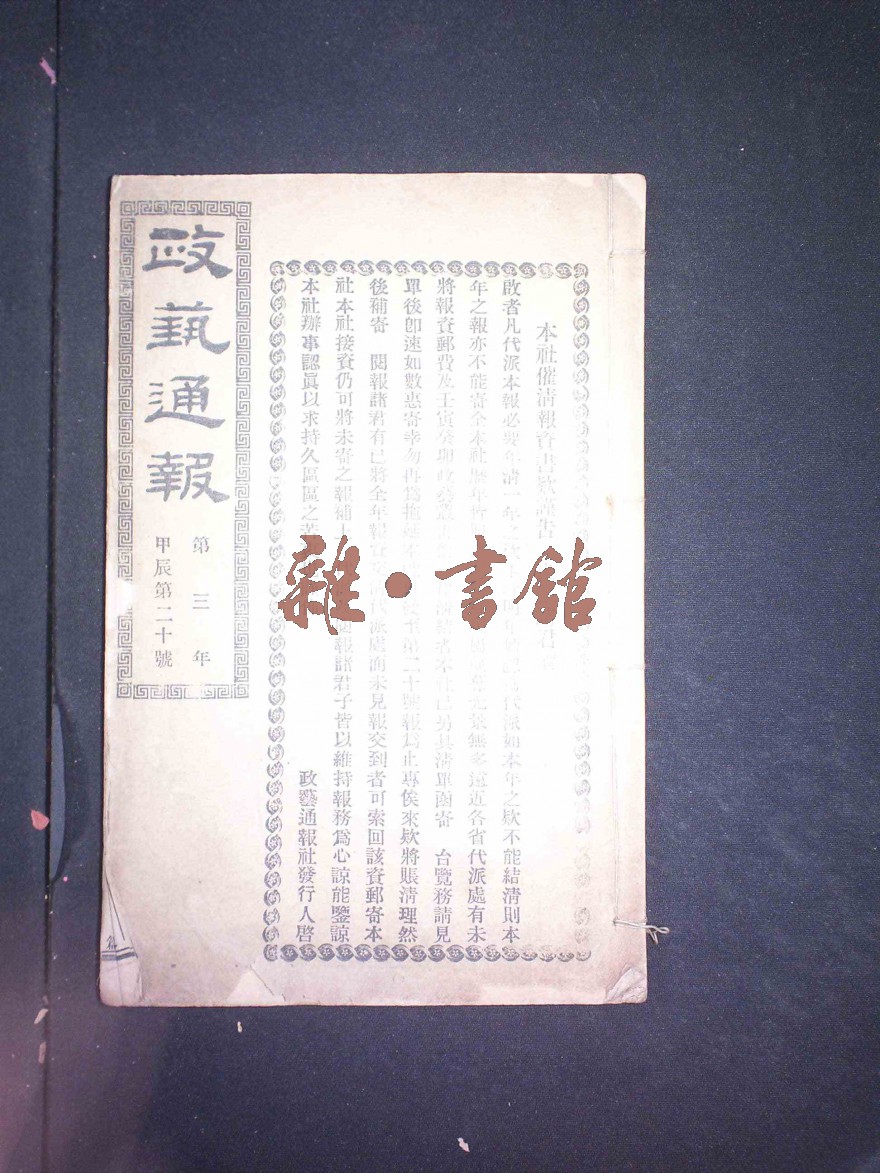 本社催清報資書欵謹告
君
啟者凡代派本報必要年清一年之
代派如本年之欵不能結清則本
年之報亦不能寄全本社歷年
無多遠近各省代派處有未
將報資郵費及壬寅癸卯政藝叢書
清結者本社已另具清單函寄 台覽務請見
單後卽速如數惠寄幸勿再爲拖延本
至第二十號報爲止專俟來欵將賬清理然
後補寄 閱報諸君有已將全年報資
代派處而未見報交到者可索回該資郵寄本
社本社接資仍可將未寄之報補上
閱報諸君子皆以維持報務爲心諒能鑒諒
本社辦事認眞以求持久區區之苦
政藝通報社發行人啓
政藝通報
第三年
甲辰第二十號
雜·書館